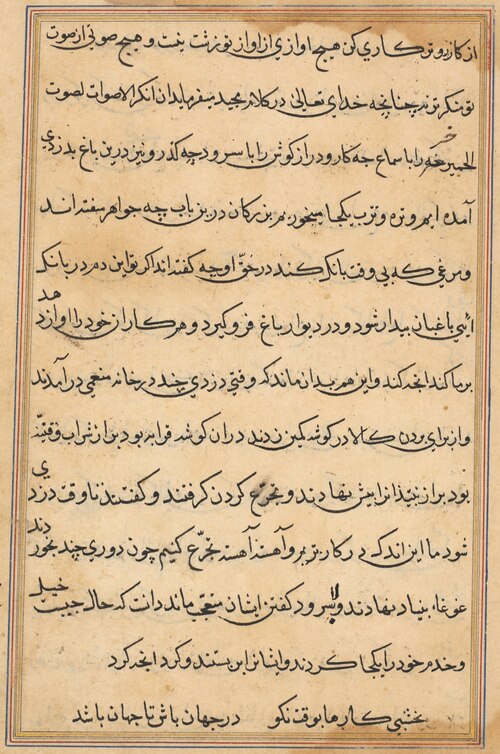 از کار و تو کاری کن هیچ اوازی از اواز تو زشت نیست و هیچ صوتی از صوت
تو منکر تو نه چنانچه خدای تعالی در کلام مجید میفرماید ان انکر الاصوات لصوت
الحمیر خر را با سماع چه کار و دراز کوش را با سرود چه کذر و نیز درین باغ بدزدی
آمده ایم و تره و ترب یکجا میخوریم بزرکان درین باب چه جواهر سفته اند
و مرغی که بی وقت بانک کند در حق او چه کفته اند اکر تو این دم در بانک
ائی باغبان بیدار شود و در دیوار باغ فرو کیرد و همه کاران خود را اواز دهد
بر ما کند انچه کند و این هم بدان ماند که وقتی دزدی چند در خانه منعمی در آمدند
و از برای بردن کالا در کوشه کمین زدند در ان کوشه قرابه بود پر از شراب و قنینه
بود پر از نبیذ انرا پیش نهادند و تجرع کردن کرفتند و کفتند تا وقت دزدی
شود ما این اندک در کار بریم و آهسته آهسته تجرع کنیم چون دوری چند بخوردند
غوغاء بنیاد نهادند و سرود کفتن ایشان منعم بماند دانست که حال چیست خیل
و خدم خود را یکجا کردند و ایشانرا بر بستند و کرد انچه کرد
نخشبی کارها بوقت نکو در جهان باش تا جهان باشد